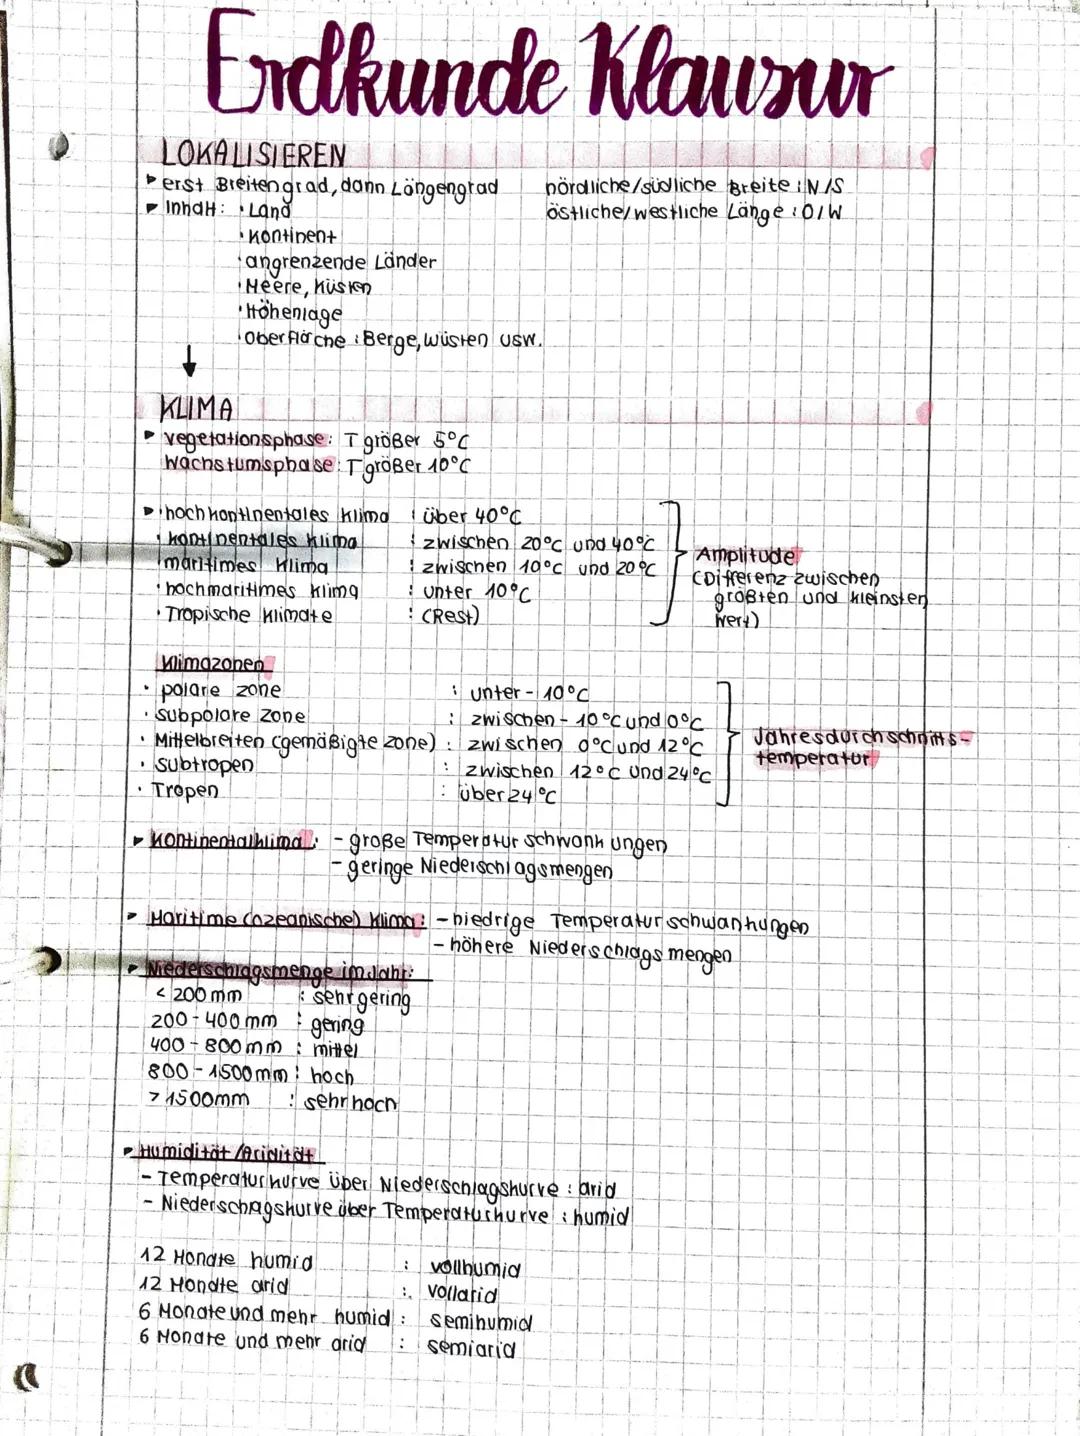 Erdkunde Klausur
LOKALISIEREN
▸ erst Breitengrad, dann Längengrad nördliche/südliche Breite : N/S
▸ Inhalt: · Land östliche/westliche Länge : O/W
· Kontinent
· angrenzende Länder
· Meere, Küsten
· Höhenlage
· Oberfläche : Berge, Wüsten usw.
↓
KLIMA
▸ Vegetationsphase: T größer 5°C
Wachstumsphase: T größer 10°C
▸ · hochkontinentales Klima : über 40°C
· kontinentales Klima : zwischen 20°C und 40°C
· maritimes Klima : zwischen 10°C und 20°C
· hochmaritimes Klima : unter 10°C
· Tropische Klimate : (Rest)
Amplitude
(Differenz zwischen
größten und kleinsten
Wert)
Klimazonen
· polare Zone : unter -10°C
· subpolare Zone : zwischen -10°C und 0°C
· Mittelbreiten (gemäßigte Zone) : zwischen 0°C und 12°C
· Subtropen : zwischen 12°C und 24°C
· Tropen : über 24°C
Jahresdurchschnitts-
temperatur
▸ Kontinentalklima: - große Temperaturschwankungen
- geringe Niederschlagsmengen
▸ Maritime (ozeanische) Klima: - niedrige Temperaturschwankungen
- höhere Niederschlagsmengen
▸ Niederschlagsmenge im Jahr:
< 200 mm : sehr gering
200 - 400 mm : gering
400 - 800 mm : mittel
800 - 1500 mm : hoch
> 1500mm : sehr hoch
▸ Humidität/Aridität
- Temperaturkurve über Niederschlagskurve : arid
- Niederschagskurve über Temperaturkurve : humid
12 Monate humid : vollhumid
12 Monate arid : vollarid
6 Monate und mehr humid : semihumid
6 Monate und mehr arid : semiarid